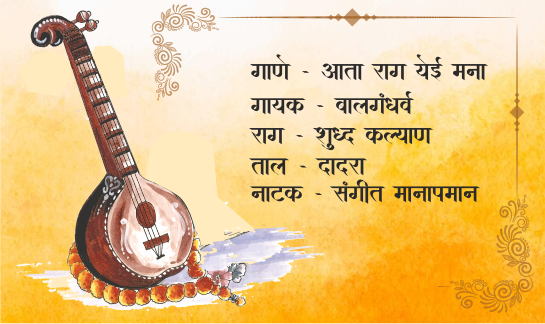 गाणे - आता राग येई मना
गायक - वालगंधर्व
राग - शुध्द कल्याण
ताल - दादरा
नाटक - संगीत मानापमान